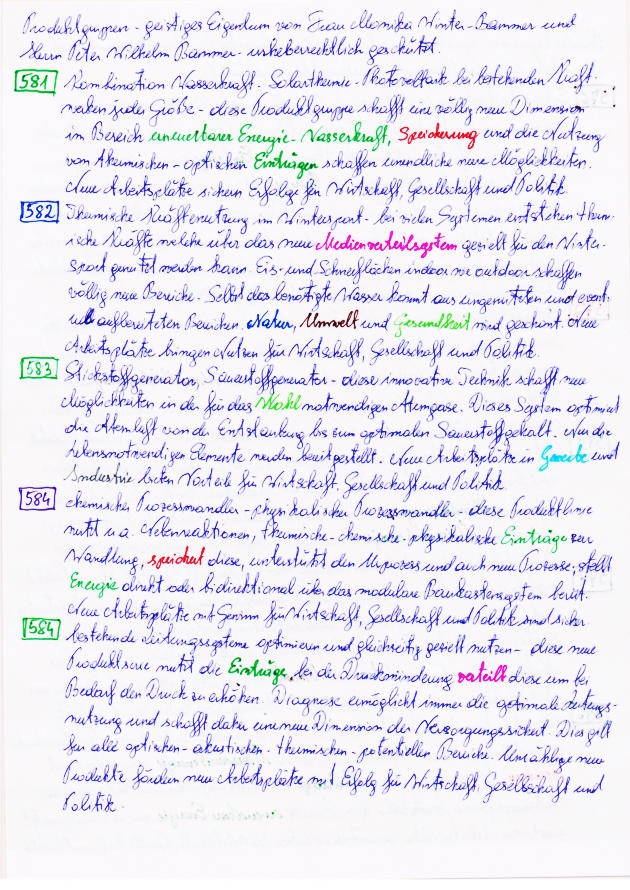 Produktgruppen - geistiges Eigentum von Frau Monika Winter-Bammer und
Herrn Peter Wilhelm Bammer - urheberrechtlich geschützt.
581 Kombination Wasserkraft - Solarthermie - Photovoltaik bei bestehenden Kraft-
werken jeder Größe - diese Produktgruppe schafft eine völlig neue Dimension
im Bereich erneuerbarer Energie - Wasserkraft, Speicherung und die Nutzung
von thermischen - optischen Einträgen schaffen unendliche neue Möglichkeiten.
Neue Arbeitsplätze sichern Erfolge für Wirtschaft, Gesellschaft und Politik
582 Thermische Kräftenutzung im Wintersport - bei vielen Systemen entstehen therm-
ische Kräfte welche über das neue Medienverteilsystem gezielt für den Winter-
sport genutzt werden kann. Eis- und Schneeflächen indoor wie outdoor schaffen
völlig neue Bereiche. Selbst das benötigte Wasser kommt aus ungenutzten und event-
uell aufbereiteten Bereichen. Natur, Umwelt und Gesundheit wird geschont. Neue
Arbeitsplätze bringen Nutzen für Wirtschaft, Gesellschaft und Politik.
583 Stickstoffgenerator, Sauerstoffgenerator - diese innovative Technik schafft neue
Möglichkeiten in der für das Wohl notwendigen Atemgase. Dieses System optimiert
die Atemluft von der Entstaubung bis zum optimalen Sauerstoffgehalt. Nur die
lebensnotwendigen Elemente werden bereitgestellt. Neue Arbeitsplätze in Gewerbe und
Industrie bieten Vorteile für Wirtschaft, Gesellschaft und Politik.
584 chemischer Prozesswandler - physikalischer Prozesswandler - diese Produktlinie
nutzt u.a. Nebenreaktionen, thermische - chemische - physikalische Einträge zur
Wandlung, speichert diese, unterstützt den Urprozess und auch neue Prozesse, stellt
Energie direkt oder bidirektional über das modulare Baukastensystem bereit.
Neue Arbeitsplätze mit Gewinn für Wirtschaft, Gesellschaft und Politik sind sicher.
584 bestehende Leitungssysteme optimieren und gleichzeitig gezielt nutzen - diese neue
Produktserie nutzt die Einträge, bei der Druckminderung verteilt diese um bei
Bedarf den Druck zu erhöhen. Diagnose ermöglicht immer die optimale Leitungs-
nutzung und schafft daher eine neue Dimension der Versorgungssicherheit. Dies gilt
für alle optischen - akustischen - thermischen - potentiellen Bereiche. Unzählige neue
Produkte fördern neue Arbeitsplätze mit Erfolg für Wirtschaft, Gesellschaft und
Politik.